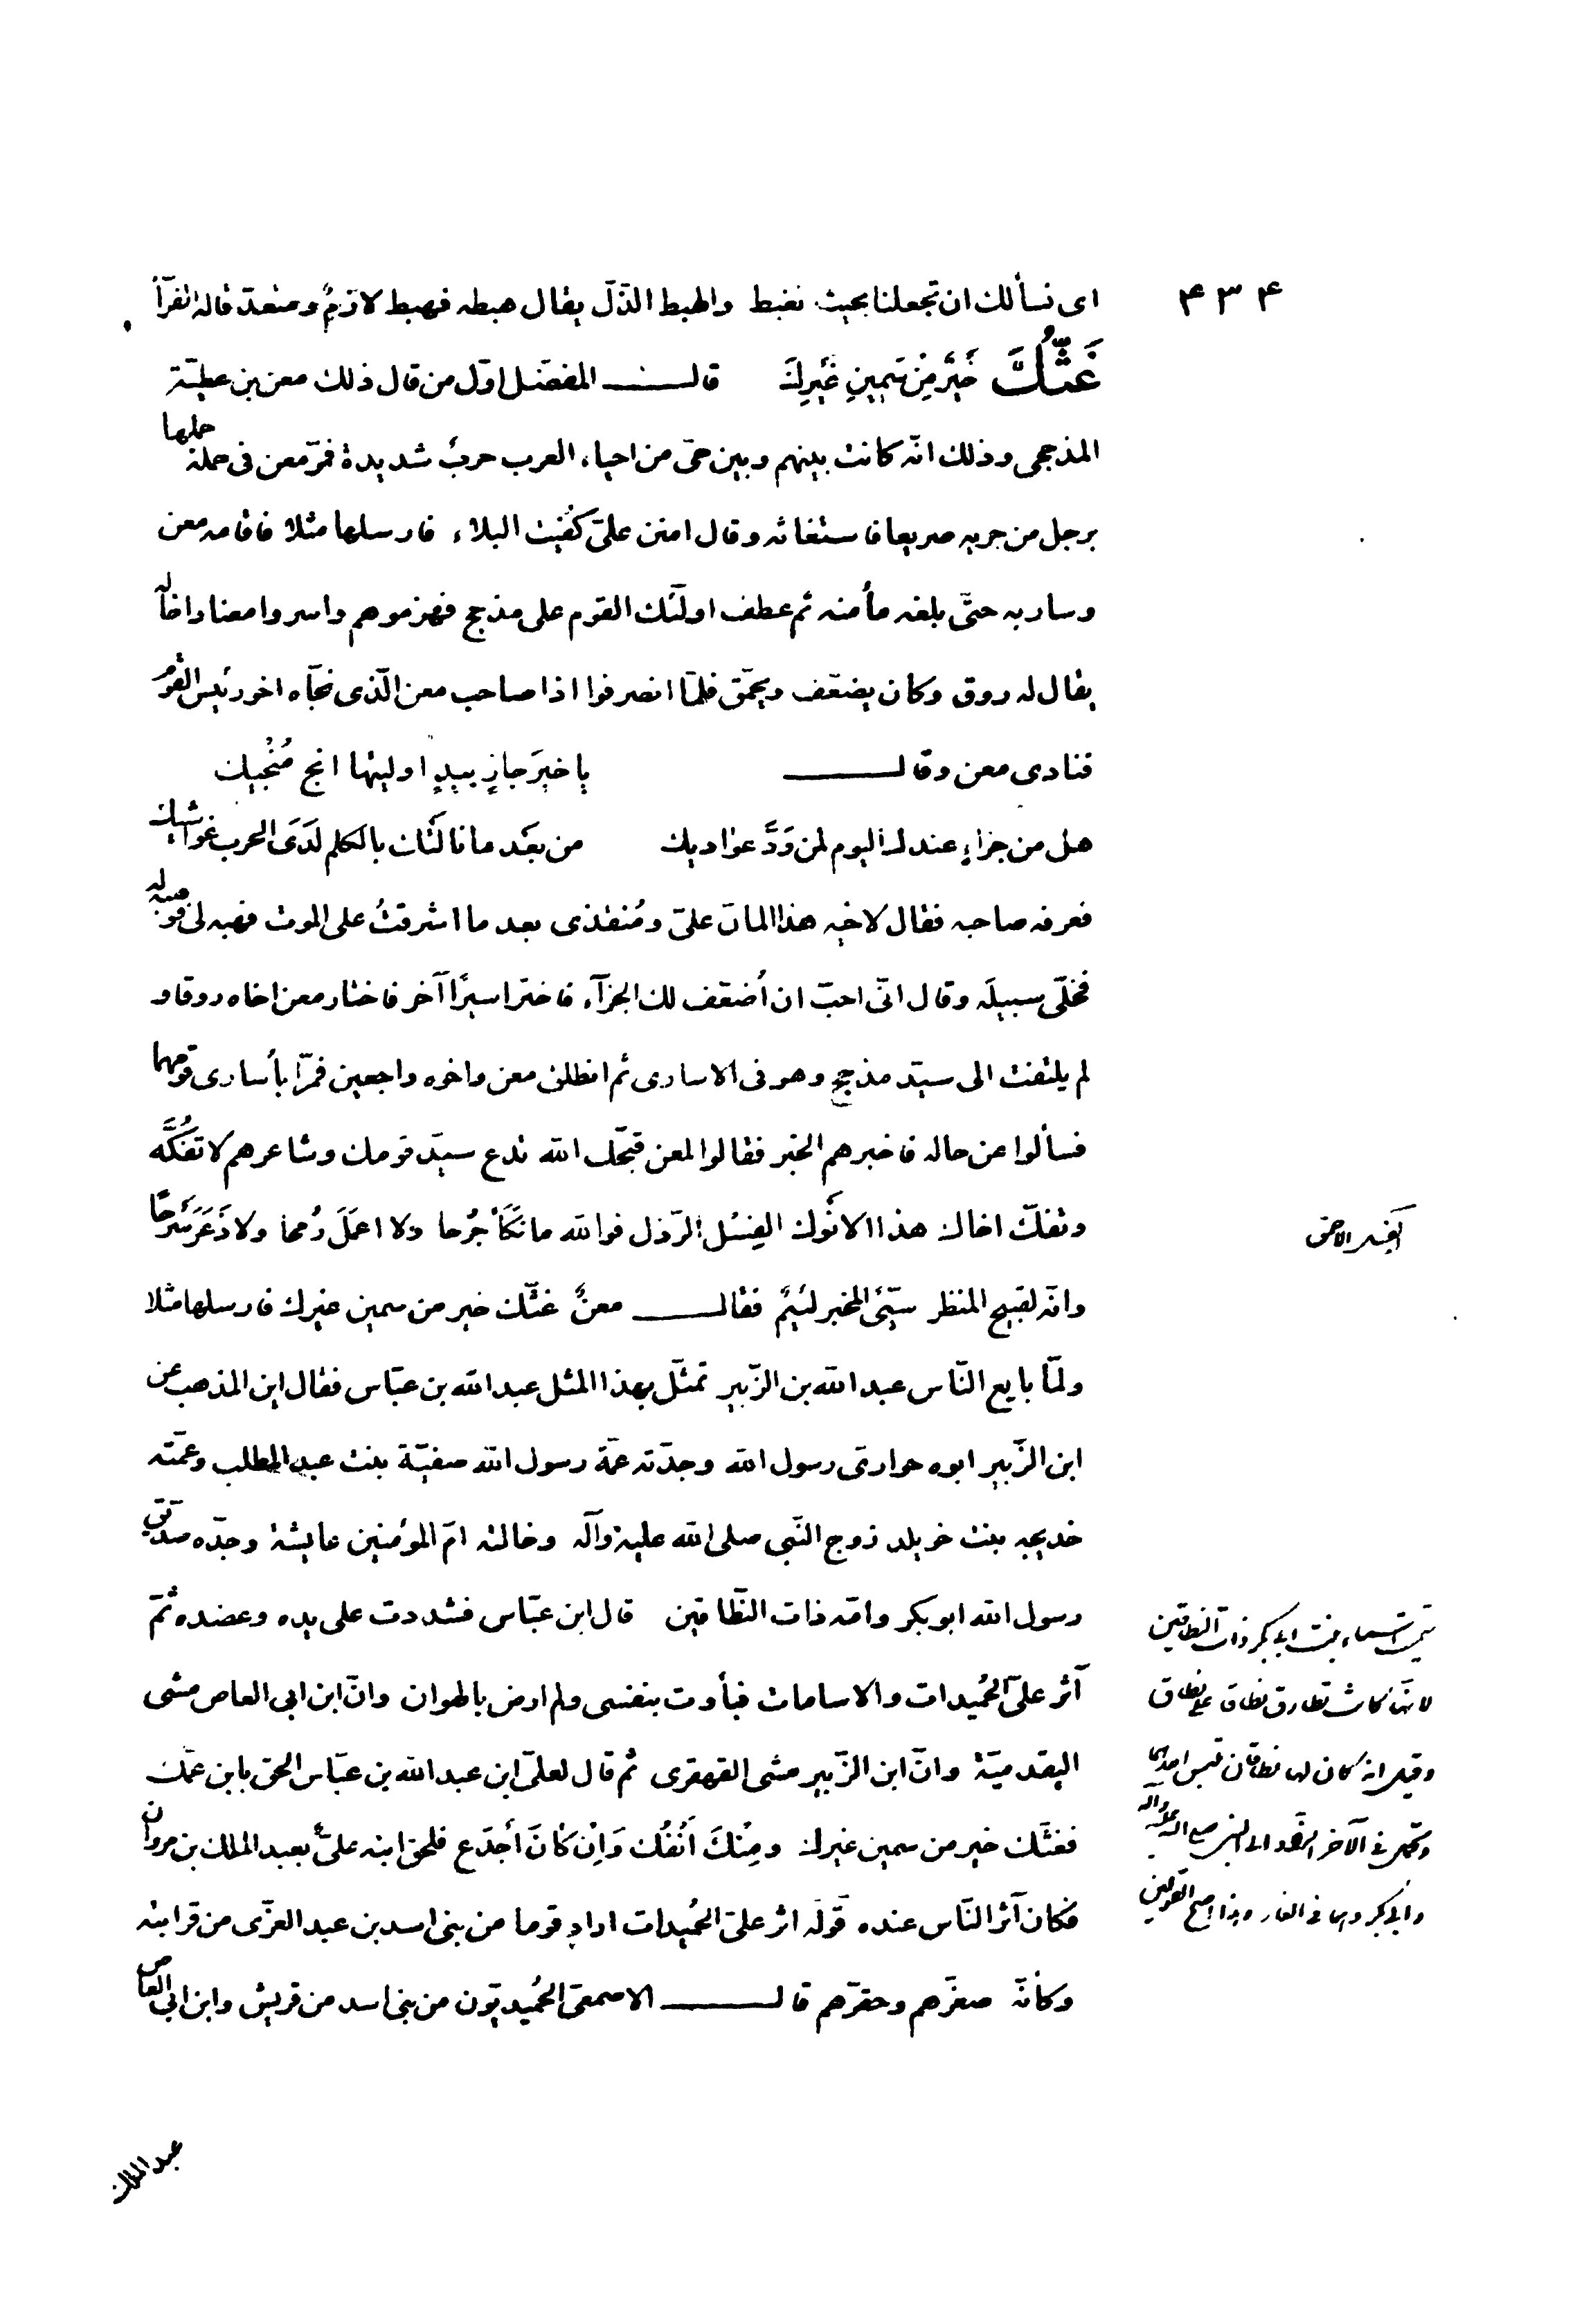 ۴۳۴
اى نسألك ان تجعلنا بحيث نغبط والهبط الذّلّ يقال هبطه فهبط لازمٌ ومتعدّ قاله الفرّآءُ
غَثُّكَ خَيْرٌ مِنْ سَمِينِ غَيْرِكَ قالـــــ المفضّل اوّل من قال ذلك معن بن عطيّة
المذحجى وذلك انّه كانت بينهم وبين حىّ من احياء العرب حربٌ شديدة فمرّ معن فى حملة حملها
برجل من حربه صريعا فاستغاثه وقال امنن علىّ كُفيت البلاء فارسلها مثلا فاقامه معن
وسار به حتّى بلغه مأمنه ثم عطف اولئك القوم على مذحج فهزموهم واسروا معنا واخا له
يقال له روق وكان يضعّف ويحمّق فلمّا انصرفوا اذا صاحب معن الّذى نجّاه اخو رئيس القوم
فنادى معن وقالـــــ يا خيرَ جازٍ بيدٍ اوليتها انج مُنْجيك
هل من جزاءٍ عندك اليوم لمن رَدَّ عواديك من بعْد ما نالتك بالكلم لَدَى الحرب غواشيك
فعرفه صاحبه فقال لاخيه هذا المانّ علىّ ومُنقذى بعد ما اشرفتُ على الموت فهبه لى فوهبه له
فخلّى سبيله وقال انّى احبّ ان أُضعّف لك الجزآء فاختر اسيرًا آخر فاختار معن اخاه روقا و
لم يلتفت الى سيّد مذحج وهو فى الاسارى ثم انطلق معن واخوه راجعين فمرّا بأسارى قومهما
فسألوا عن حاله فاخبرهم الخبر فقالوا لمعن قبّحك الله تدع سيّد قومك وشاعرهم لا تفُكّه
وتفكّ اخاك هذا الانْوك الفِسْل الرّذل فوالله ما نَكَأَ جُرحا ولا اعمَلَ رُمحا ولا ذَعَرَ سَرْحًا
وانّه لقبيح المنظر سيّئ المخبر لئيمٌ فقالـــــ معنٌ غثّك خير من سمين غيرك فارسلها مثلا
ولمّا بايع النّاس عبد الله بن الزّبير تمثّل بهذا المثل عبد الله بن عبّاس فقال اين المذهب عن
ابن الزّبير ابوه حوارىّ رسول الله وجدّته عمّة رسول الله صفيّة بنت عبد المطلب وعمّته
خديجه بنت خويلد زوج النّبى صلى الله عليه وآله وخالته امّ المؤمنين عايشة وجدّه صدّيق
رسول الله ابوبكر وامّه ذات النّطاقين قال ابن عبّاس فشددت على يده وعضده ثمّ
آثر علىّ الحُميدات والاسامات فبأوت بنفسى ولم ارض بالهوان وانّ ابن ابى العاص مشى
اليقدميّة وانّ ابن الزّبير مشى القهقرى ثم قال لعلىّ ابن عبد الله بن عبّاس الحق بابن عمّك
فغثّك خير من سمين غيرك ومِنْكَ اَنْفُك وَاِنْ كَانَ أجْدَع فلحق ابنه علىّ بعبد الملك بن مروان
فكان آثر النّاس عنده قوله اثر علىّ الحُميدات اراد قوما من بنى اسد بن عبد العزّى من قرابته
وكأنّه صغّرهم وحقّرهم قالـــــ الاصمعىّ الحُميديّون من بنى اسد من قريش وابن ابى العاص
الفسل الاحمق
سميت اسماء بنت ابى بكر ذات النطاقين
لانها كانت تطارق نطاقا على نطاق
وقيل انه كان لها نطاقان تلبس احدهما
وتحمل فى الآخر الزاد الى النبى صلى الله عليه وآله
وابى بكر وهما فى الغار وهذا اصح القولين
عبد الملك